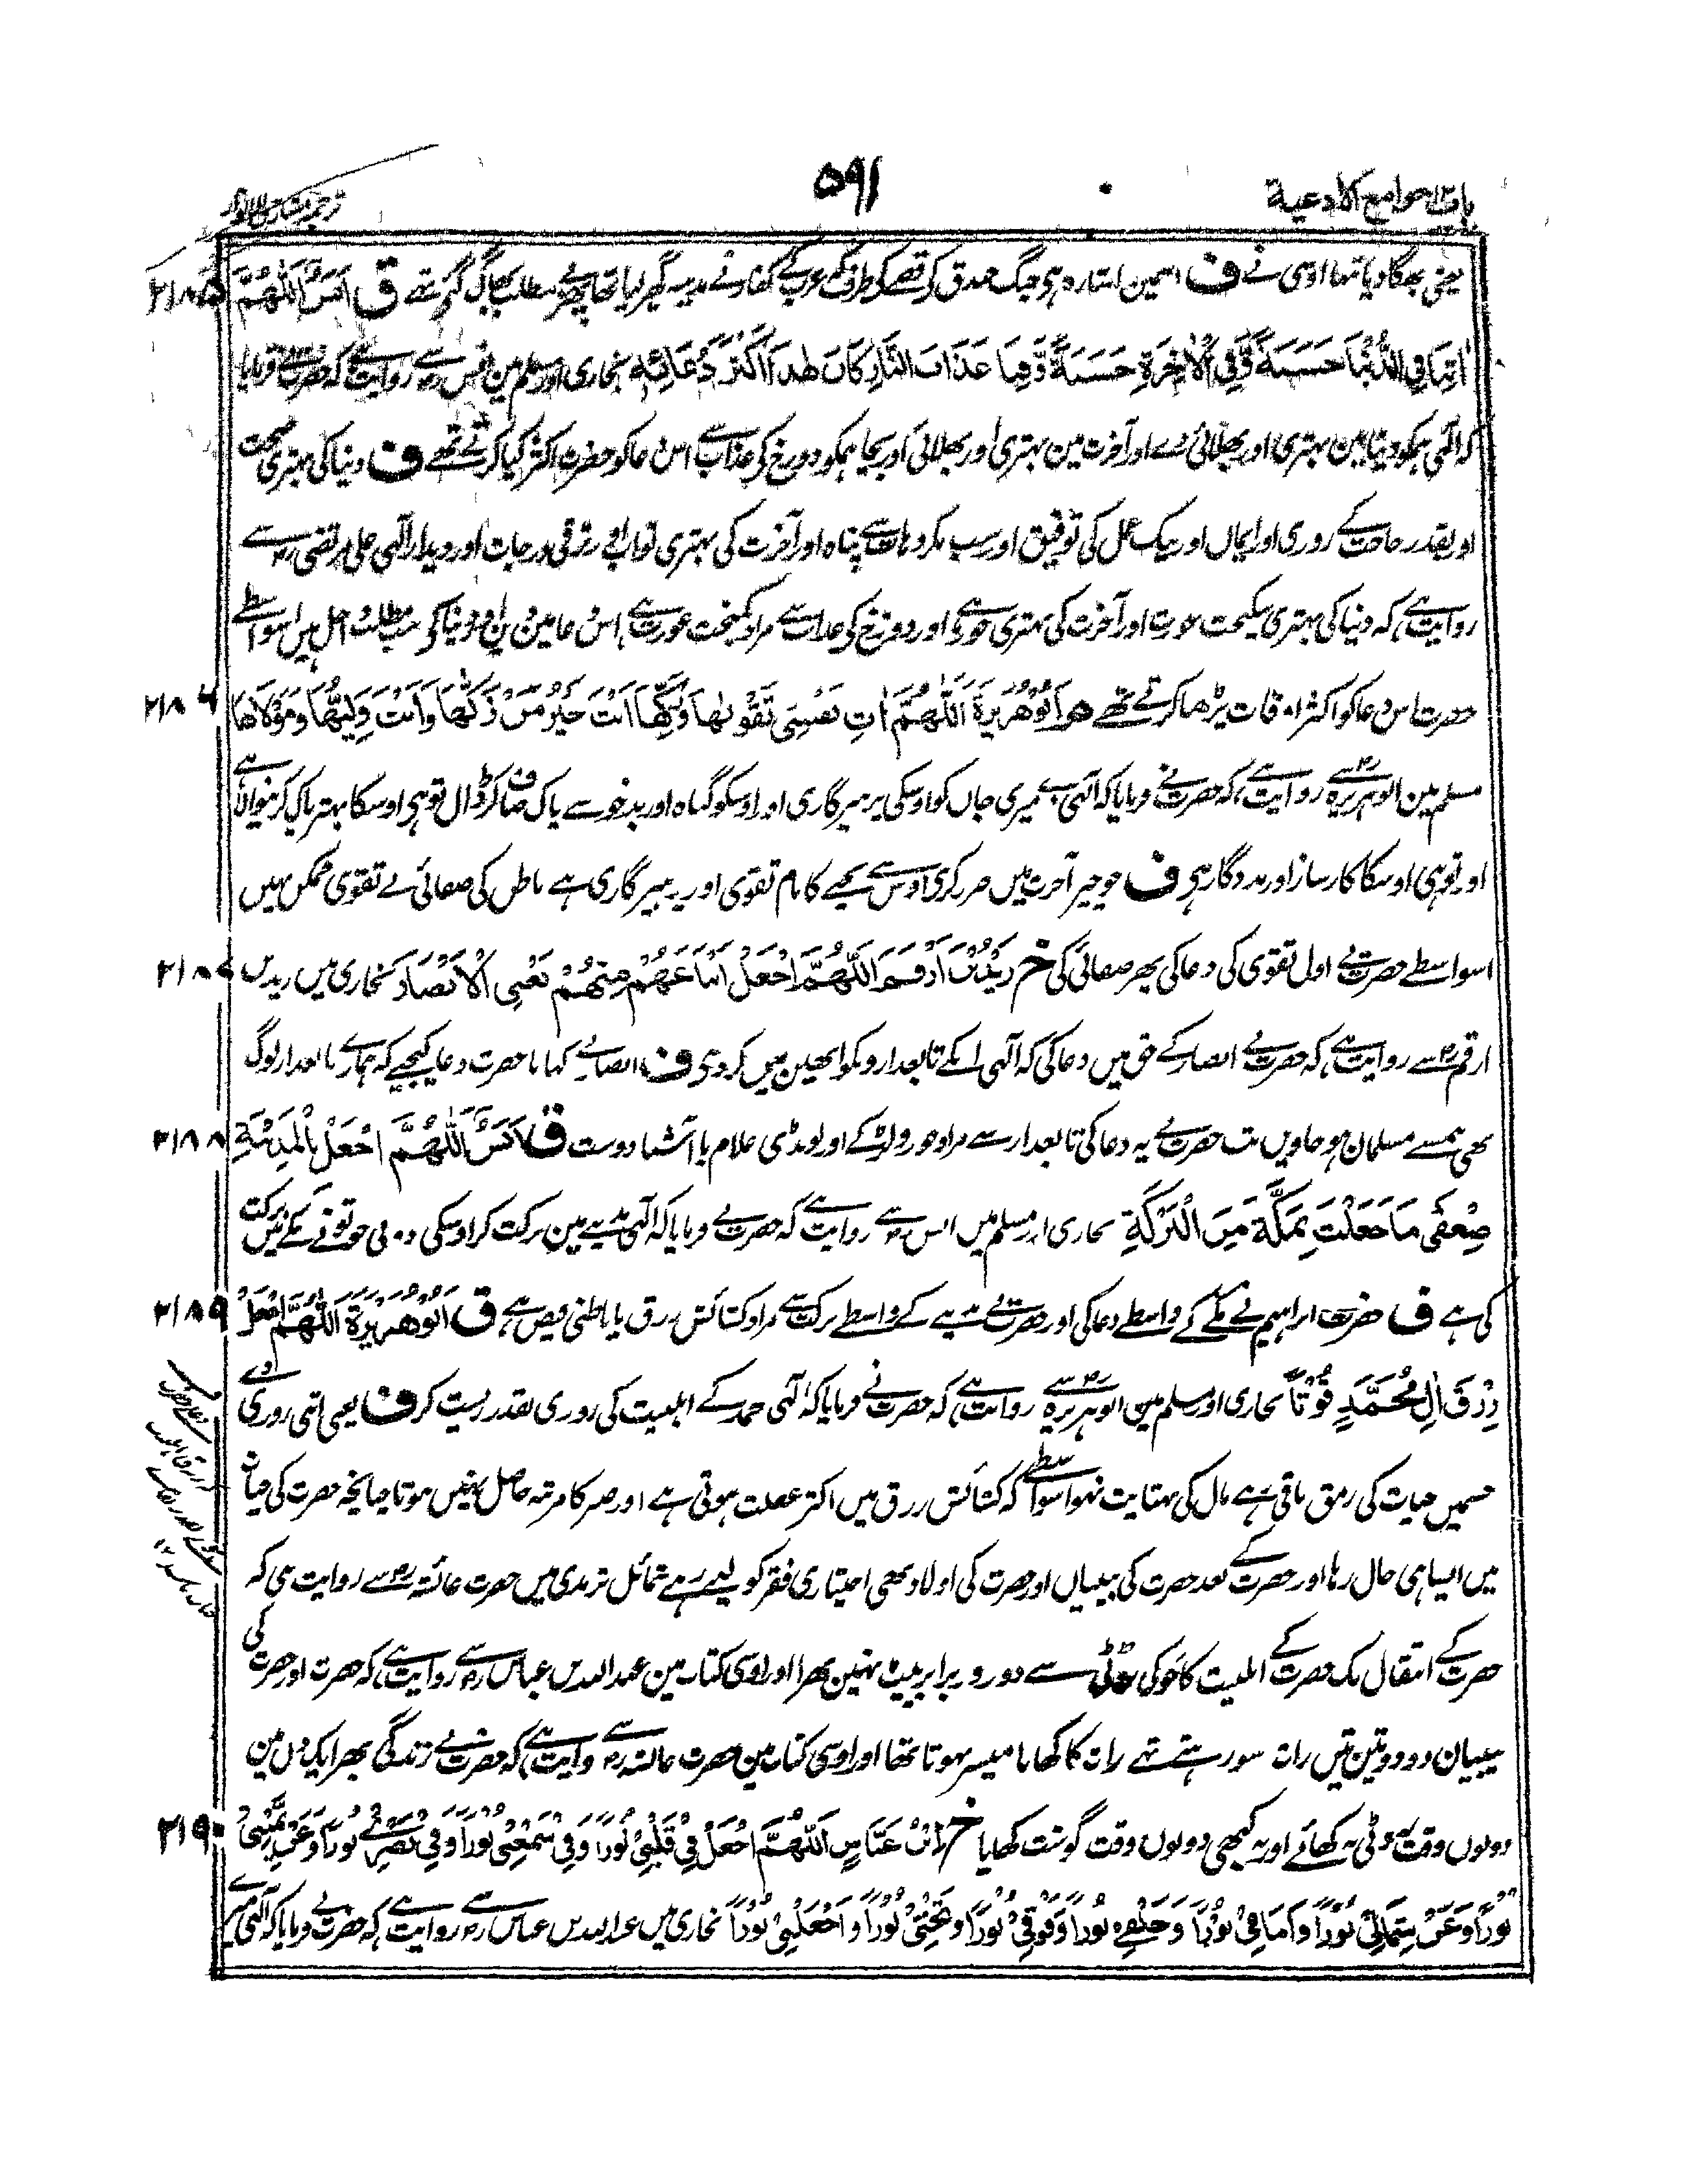 باب جوامع الادعیة
۵۹۱
ترجمہ مشارق الانوار
یعنی بھگا دیا تنہا اوسی نے ف اسمین اشارہ ہی جنگ خندق کے قصے کی طرف کہ عرب کے کفار نے مدینہ گھیر لیا تھا پھر بے مطلب بھاگ گئے تھے ق اَنَسٌ اَللّٰهُمَّ ۲۱۸۵
اٰتِنَا فِي الدُّنْيَا حَسَنَةً وَّفِي الْاٰخِرَةِ حَسَنَةً وَّقِنَا عَذَابَ النَّارِ كَانَ هٰذَا اَكْثَرَ دُعَائِهٖ بخاری اور مسلم مین انس رض سے روایت ہے کہ حضرت نے فرمایا
کہ الٰہی ہمکو دنیا مین بہتری اور بھلائی دے اور آخرت مین بہتری اور بھلائی اور بچا ہمکو دوزخ کے عذاب سے اس دعا کو حضرت اکثر کیا کرتے تھے ف دنیا کی بہتری صحت
اور بقدر حاجت کے روزی اور ایمان اور نیک عمل کی توفیق اور سب مکروہات سے پناہ اور آخرت کی بہتری ثواب اور ترقی درجات اور دیدار الٰہی علی مرتضی رض سے
روایت ہے کہ دنیا کی بہتری نیکبخت عورت اور آخرت کی بہتری حور ہے اور دوزخ کی عذاب سے مراد کمبخت عورت ہے اس دعا مین دین اور دنیا کے سب مطلب حاصل ہیں اسواسطے
حضرت اس دعا کو اکثر اوقات پڑھا کرتے تھے هو اَبُوْهُرَيْرَةَ اَللّٰهُمَّ اٰتِ نَفْسِيْ تَقْوٰىهَا وَزَكِّهَا اَنْتَ خَيْرُ مَنْ زَكّٰىهَا وَاَنْتَ وَلِيُّهَا وَمَوْلَاهَا ۲۱۸۶
مسلم مین ابوہریرہ رض سے روایت ہے کہ حضرت نے فرمایا کہ الٰہی دے میری جان کو اوسکی پرہیزگاری اور اوسکو گناہ اور بدخو سے پاک صاف کر ڈال تو ہی اوسکا بہتر پاک کرنیوالا ہے
اور تو ہی اوسکا کارساز اور مددگار ہی ف جو چیز آخرت میں ضرر کرے اوس سے بچنے کا نام تقوی اور پرہیزگاری ہے باطن کی صفائی بے تقوی ممکن نہیں
اسواسطے حضرت نے اول تقوی کی دعا کی پھر صفائی کی خ زَيْدُ بْنُ اَرْقَمَ اَللّٰهُمَّ اجْعَلْ اَتْبَاعَهُمْ مِنْهُمْ يَعْنِي الْاَنْصَارَ بخاری میں زید بن ۲۱۸۷
ارقم رض سے روایت ہے کہ حضرت نے انصار کے حق میں دعا کی کہ الٰہی انکے تابعدارونکو انھین میں کر دی ف انصار نے کہا یا حضرت دعا کیجیے کہ ہمارے تابعدار لوگ
بھی ہمسے مسلمان ہو جاویں تب حضرت نے یہ دعا کی تابعدار سے مراد جورو لڑکے اور لونڈی غلام یا آشنا دوست ق اَنَسٌ اَللّٰهُمَّ اجْعَلْ بِالْمَدِيْنَةِ ۲۱۸۸
ضِعْفَيْ مَا جَعَلْتَ بِمَكَّةَ مِنَ الْبَرَكَةِ بخاری اور مسلم میں انس رض سے روایت ہے کہ حضرت نے فرمایا کہ الٰہی مدینے مین برکت کر اوسکی دونی جو تو نے مکے میں برکت
کی ہے ف حضرت ابراہیم نے مکے کے واسطے دعا کی اور حضرت نے مدینے کے واسطے برکت سے مراد کشائش رزق یا باطنی فیض ہے ق اَبُوْهُرَيْرَةَ اَللّٰهُمَّ اجْعَلْ ۲۱۸۹
رِزْقَ اٰلِ مُحَمَّدٍ قُوْتًا بخاری اور مسلم مین ابوہریرہ رض سے روایت ہے کہ حضرت نے فرمایا کہ الٰہی محمد کے اہلبیت کی روزی بقدر زیست کر ف یعنی اتنی روزی دے
جسمیں حیات کی رمق باقی رہے مال کی بہتایت نہو اسواسطے کہ کشائش رزق میں اکثر غفلت ہوتی ہے اور صبر کا مرتبہ حاصل نہیں ہوتا چنانچہ حضرت کی حیات
میں ایسا ہی حال رہا اور حضرت کے بعد حضرت کی بیبیاں اور حضرت کی اولاد بھی اختیاری فقر کو لیے رہے شمائل ترمذی میں حضرت عائشہ رض سے روایت ہی کہ
حضرت کے انتقال تک حضرت کے اہلبیت کا جو کی روٹی سے دو روز برابر پیٹ نہین بھرا اور اوسی کتاب مین عبداللہ بن عباس رض سے روایت ہے کہ حضرت اور حضرت کی
بیبیان دو دو تین تین رات سو رہتے تھے رات کا کھانا میسر نہوتا تھا اور اوسی کتاب مین حضرت عائشہ رض سے روایت ہے کہ حضرت نے زندگی بھر ایک دن مین
دونوں وقت روٹی نہ کھائے اور نہ کبھی دونوں وقت گوشت کھایا خ اِبْنُ عَبَّاسٍ اَللّٰهُمَّ اجْعَلْ فِيْ قَلْبِيْ نُوْرًا وَفِيْ سَمْعِيْ نُوْرًا وَفِيْ بَصَرِيْ نُوْرًا وَعَنْ يَّمِيْنِيْ ۲۱۹۰
نُوْرًا وَعَنْ شِمَالِيْ نُوْرًا وَاَمَامِيْ نُوْرًا وَخَلْفِيْ نُوْرًا وَفَوْقِيْ نُوْرًا وَتَحْتِيْ نُوْرًا وَاجْعَلْنِيْ نُوْرًا بخاری میں عبداللہ بن عباس رض سے روایت ہے کہ حضرت نے فرمایا کہ الٰہی میرے